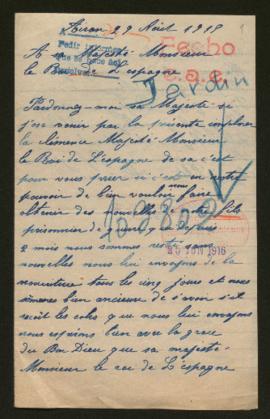 29 Août 1918
A sa Majesté Monsieur
Fecho
le Roi de L'espagne
Pedir
c.a.e.
Jardin
Pardonnez-moi sa Majesté si
j'ose venir par la présente implorer
la clémence Majesté Monsieur
le Roi de L'espagne de sa c'est
pour vous prier si c'est en votre
pouvoir de bien vouloir nous faire
obtenir des nouvelles de notre fils
prisonnier de guerre depuis
2 mois nous sommes resté sans
nouvelles nous lui envoyons de la
nourriture tous les cinq jours et nous
bien de savoir s'il
reçoit les colis que nous lui envoyons
nous espérons bien avec la grace
du Bon Dieu que sa majesté
Monsieur le roi de L'espagne